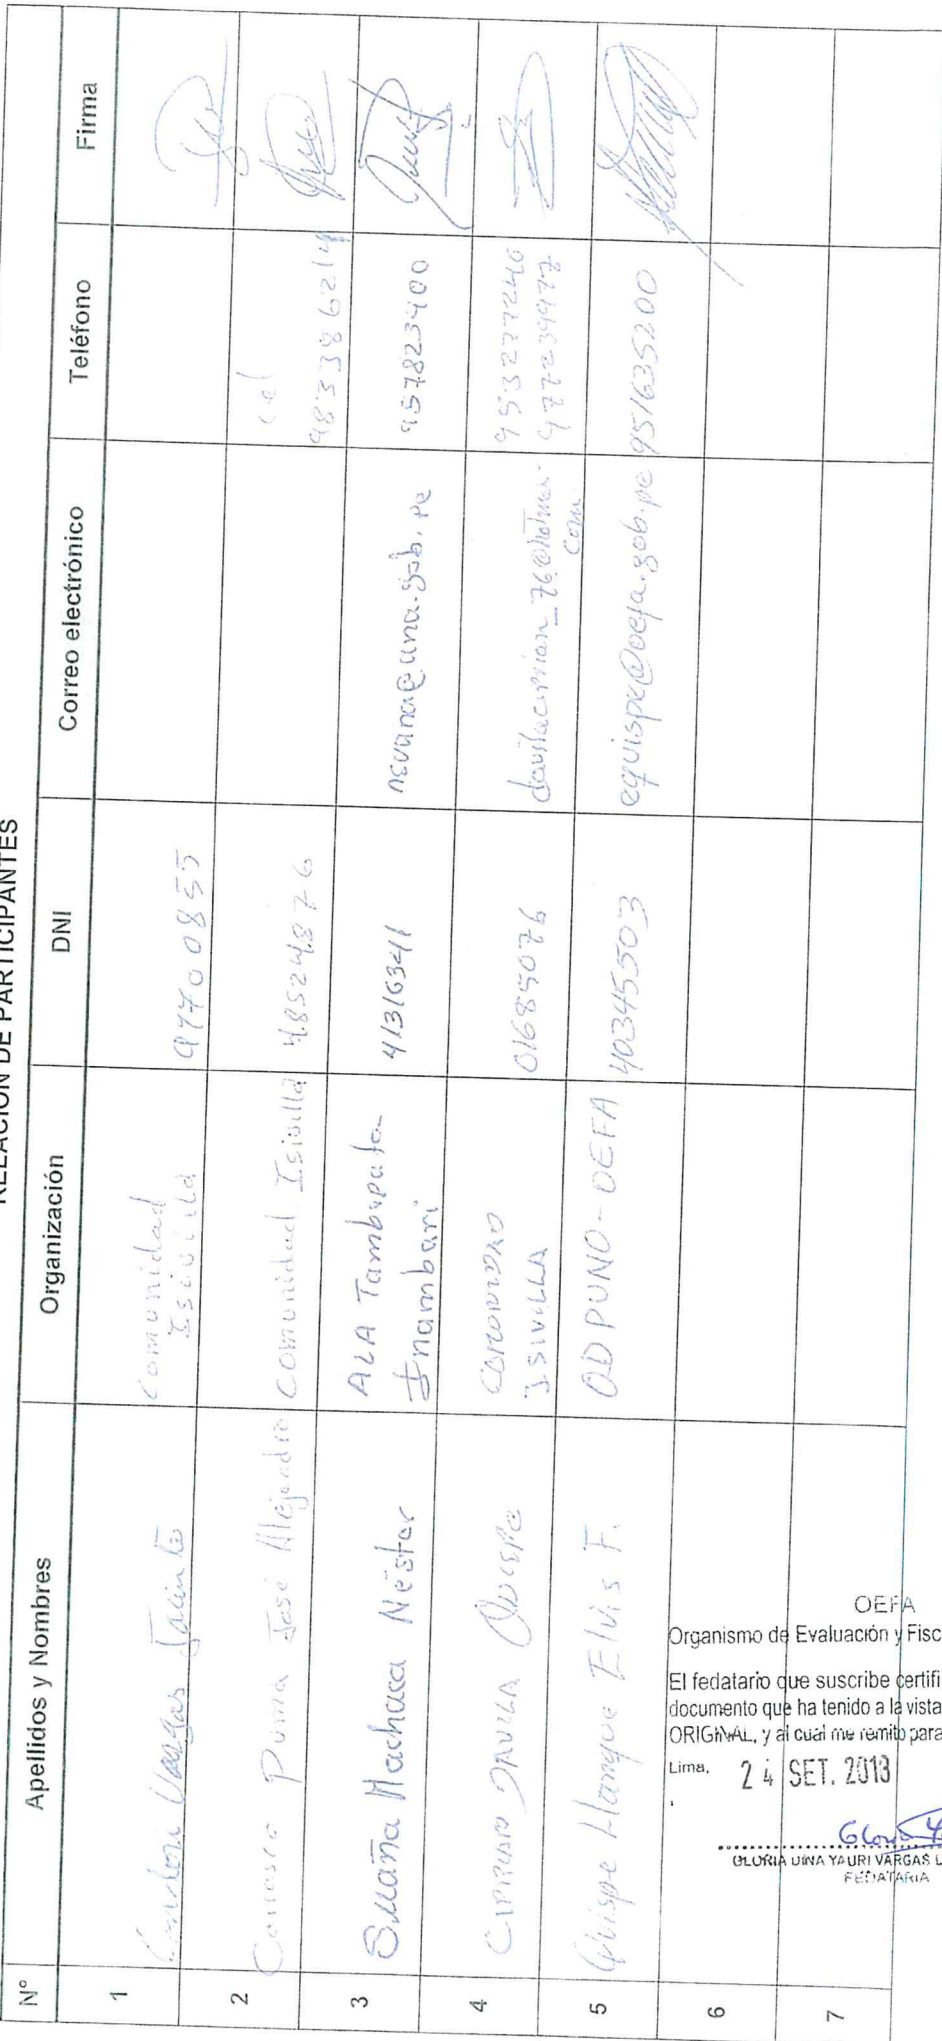 RELACIÓN DE PARTICIPANTES
N° Apellidos y Nombres Organización DNI Correo electrónico Teléfono Firma
1 Vargas Jacinto Comunidad Isivilla
2 Carrasco Puma José Alejandro Comunidad Isivilla 48524876 cel 983386214
3 Suaña Machaca Néster ALA Tambopata- Inambari 41316341 nsuana@ana.gob.pe 957823400
4 CIPRIAN DAVILA Quispe COMUNIDAD ISIVILLA 01685076 davilaciprian_76@hotmail. com 953277240 977239977
5 Quispe Hanque Elvis F. OD PUNO - OEFA 40345503 equispe@oefa.gob.pe 951635200
6
7
OEFA
Organismo de Evaluación y Fisc
El fedatario que suscribe certifi
documento que ha tenido a la vista
ORIGINAL, y al cual me remito para
Lima, 24 SET. 2013
GLORIA DINA YAURI VARGAS
FEDATARIA